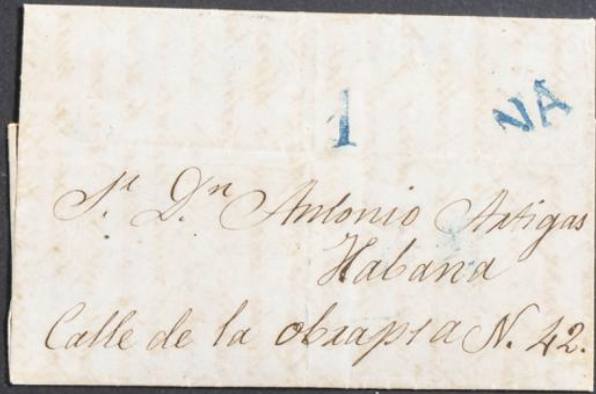 1
NA
Sr. Dn. Antonio Artigas
Habana
Calle de la obrapia N. 42.